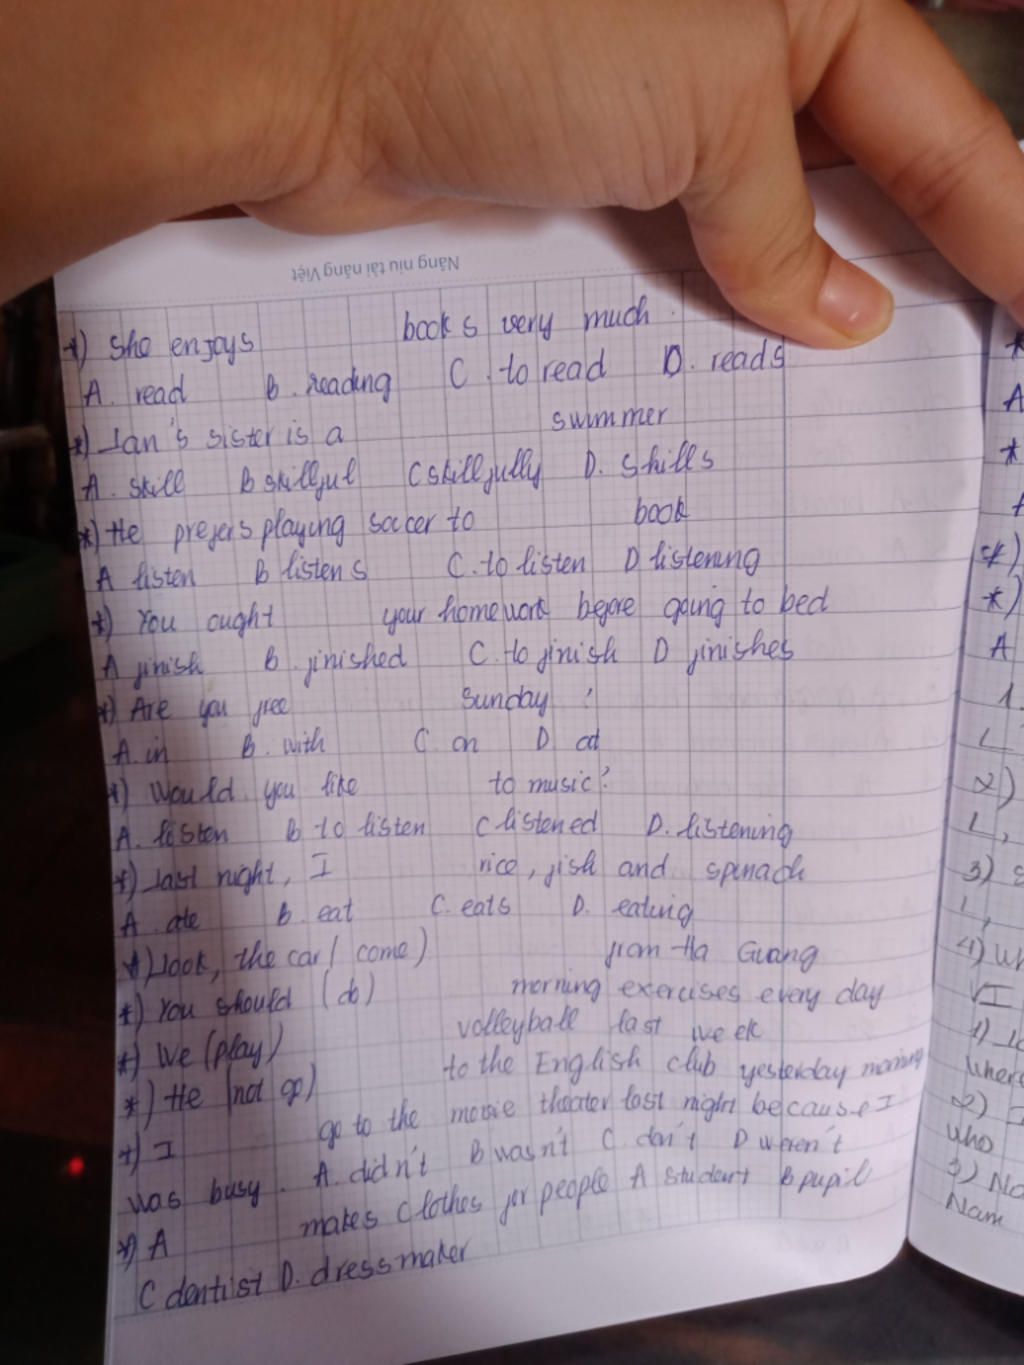 Nâng niu tài năng Việt
*) She enjoys books very much.
A. read B. reading C. to read D. reads
*) Lan's sister is a swimmer
A. skill B skillful C skillfully D. skills
*) He prefers playing soccer to book
A listen B listens C. to listen D listening
*) You ought your homework before going to bed
A finish B. finished C. to finish D finishes
*) Are you free Sunday ?
A. in B. with C. on D. at
*) Would you like to music?
A. listen B to listen C listened D. listening
*) Last night, I rice, fish and spinach
A. ate B. eat C. eats D. eating
*) Look, the car ( come) from Ha Giang
*) You should (do) morning exercises every day
*) We (play) volleyball last week
*) He (not go) to the English club yesterday morning
*) I go to the movie theater last night because I
was busy. A. didn't B wasn't C. don't D weren't
*) A makes clothes for people A student B pupil
C dentist D. dressmaker
*
A
*
A
*)
*)
A
1.
L
2)
L,
3) S
L,
4) Wh
VI
1)
Where
2) I
Who
3) Na
Nam